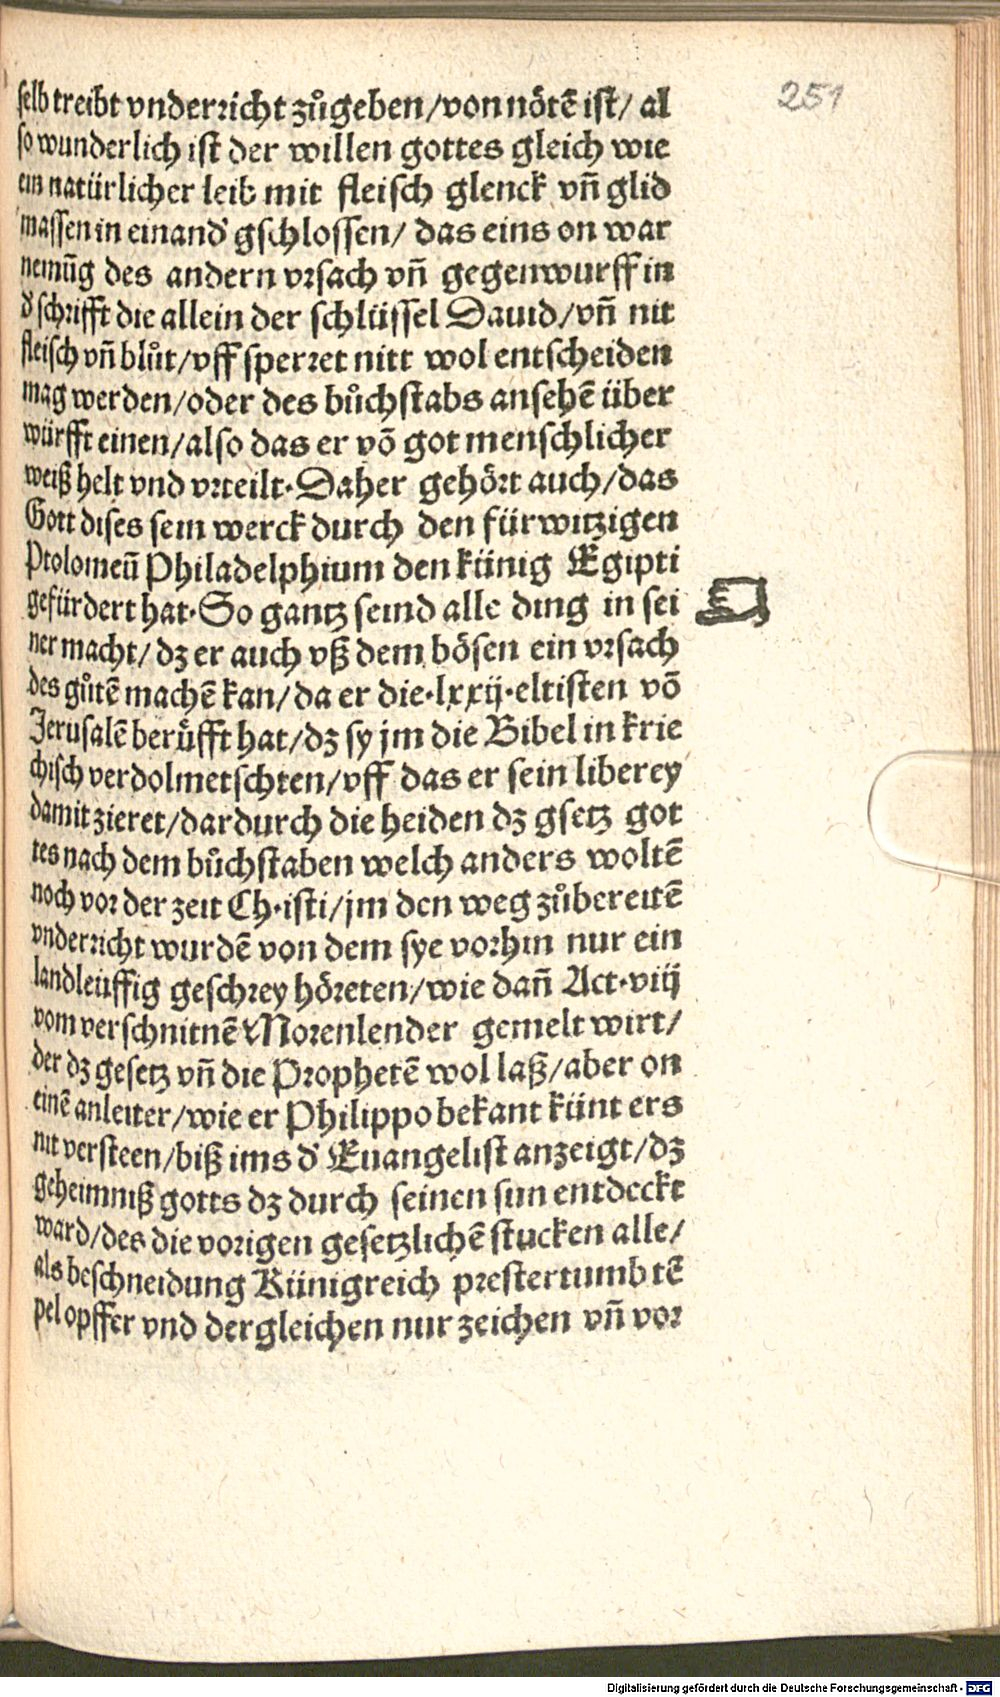 251
selb treibt vnderricht zůgeben/von nötẽ ist/ al
so wunderlich ist der willen gottes gleich wie
ein natürlicher leib mit fleisch glenck vñ glid
massen in einand' gschlossen/ das eins on war
nemũg des andern vrsach vñ gegenwurff in
d' schrifft die allein der schlüssel Dauid/vñ nit
fleisch vñ blůt/vff sperret nitt wol entscheiden
mag werden/oder des bůchstabs ansehẽ über
würfft einen/also das er võ got menschlicher
weiß helt vnd vrteilt·Daher gehört auch/das
Gott dises sein werck durch den fürwitzigen
Ptolomeũ Philadelphium den künig Egipti
gefürdert hat·So gantz seind alle ding in sei
ner macht/ dz er auch vß dem bösen ein vrsach
des gůtẽ machẽ kan/da er die·lxxij·eltisten võ
Jerusalẽ berüfft hat/dz sy jm die Bibel in krie
chisch verdolmetschten/vff das er sein liberey
damit zieret/dardurch die heiden dz gsetz got
tes nach dem bůchstaben welch anders woltẽ
noch vor der zeit Ch·isti/jm den weg zůbereitẽ
vnderricht wurdẽ von dem sye vorhin nur ein
landleüffig geschrey höreten/wie dañ Act·viij
vom verschnitnẽ Morenlender gemelt wirt/
der dz gesetz vñ die Prophetẽ wol laß/aber on
einẽ anleiter/wie er Philippo bekant künt ers
nit versteen/biß ims d' Euangelist anzeigt/dz
geheimniß gotts dz durch seinen sun entdeckt
ward/des die vorigen gesetzlichẽ stucken alle/
als beschneidung Künigreich prestertumb tẽ
pel opffer vnd dergleichen nur zeichen vñ vor
Digitalisierung gefördert durch die Deutsche Forschungsgemeinschaft - DFG